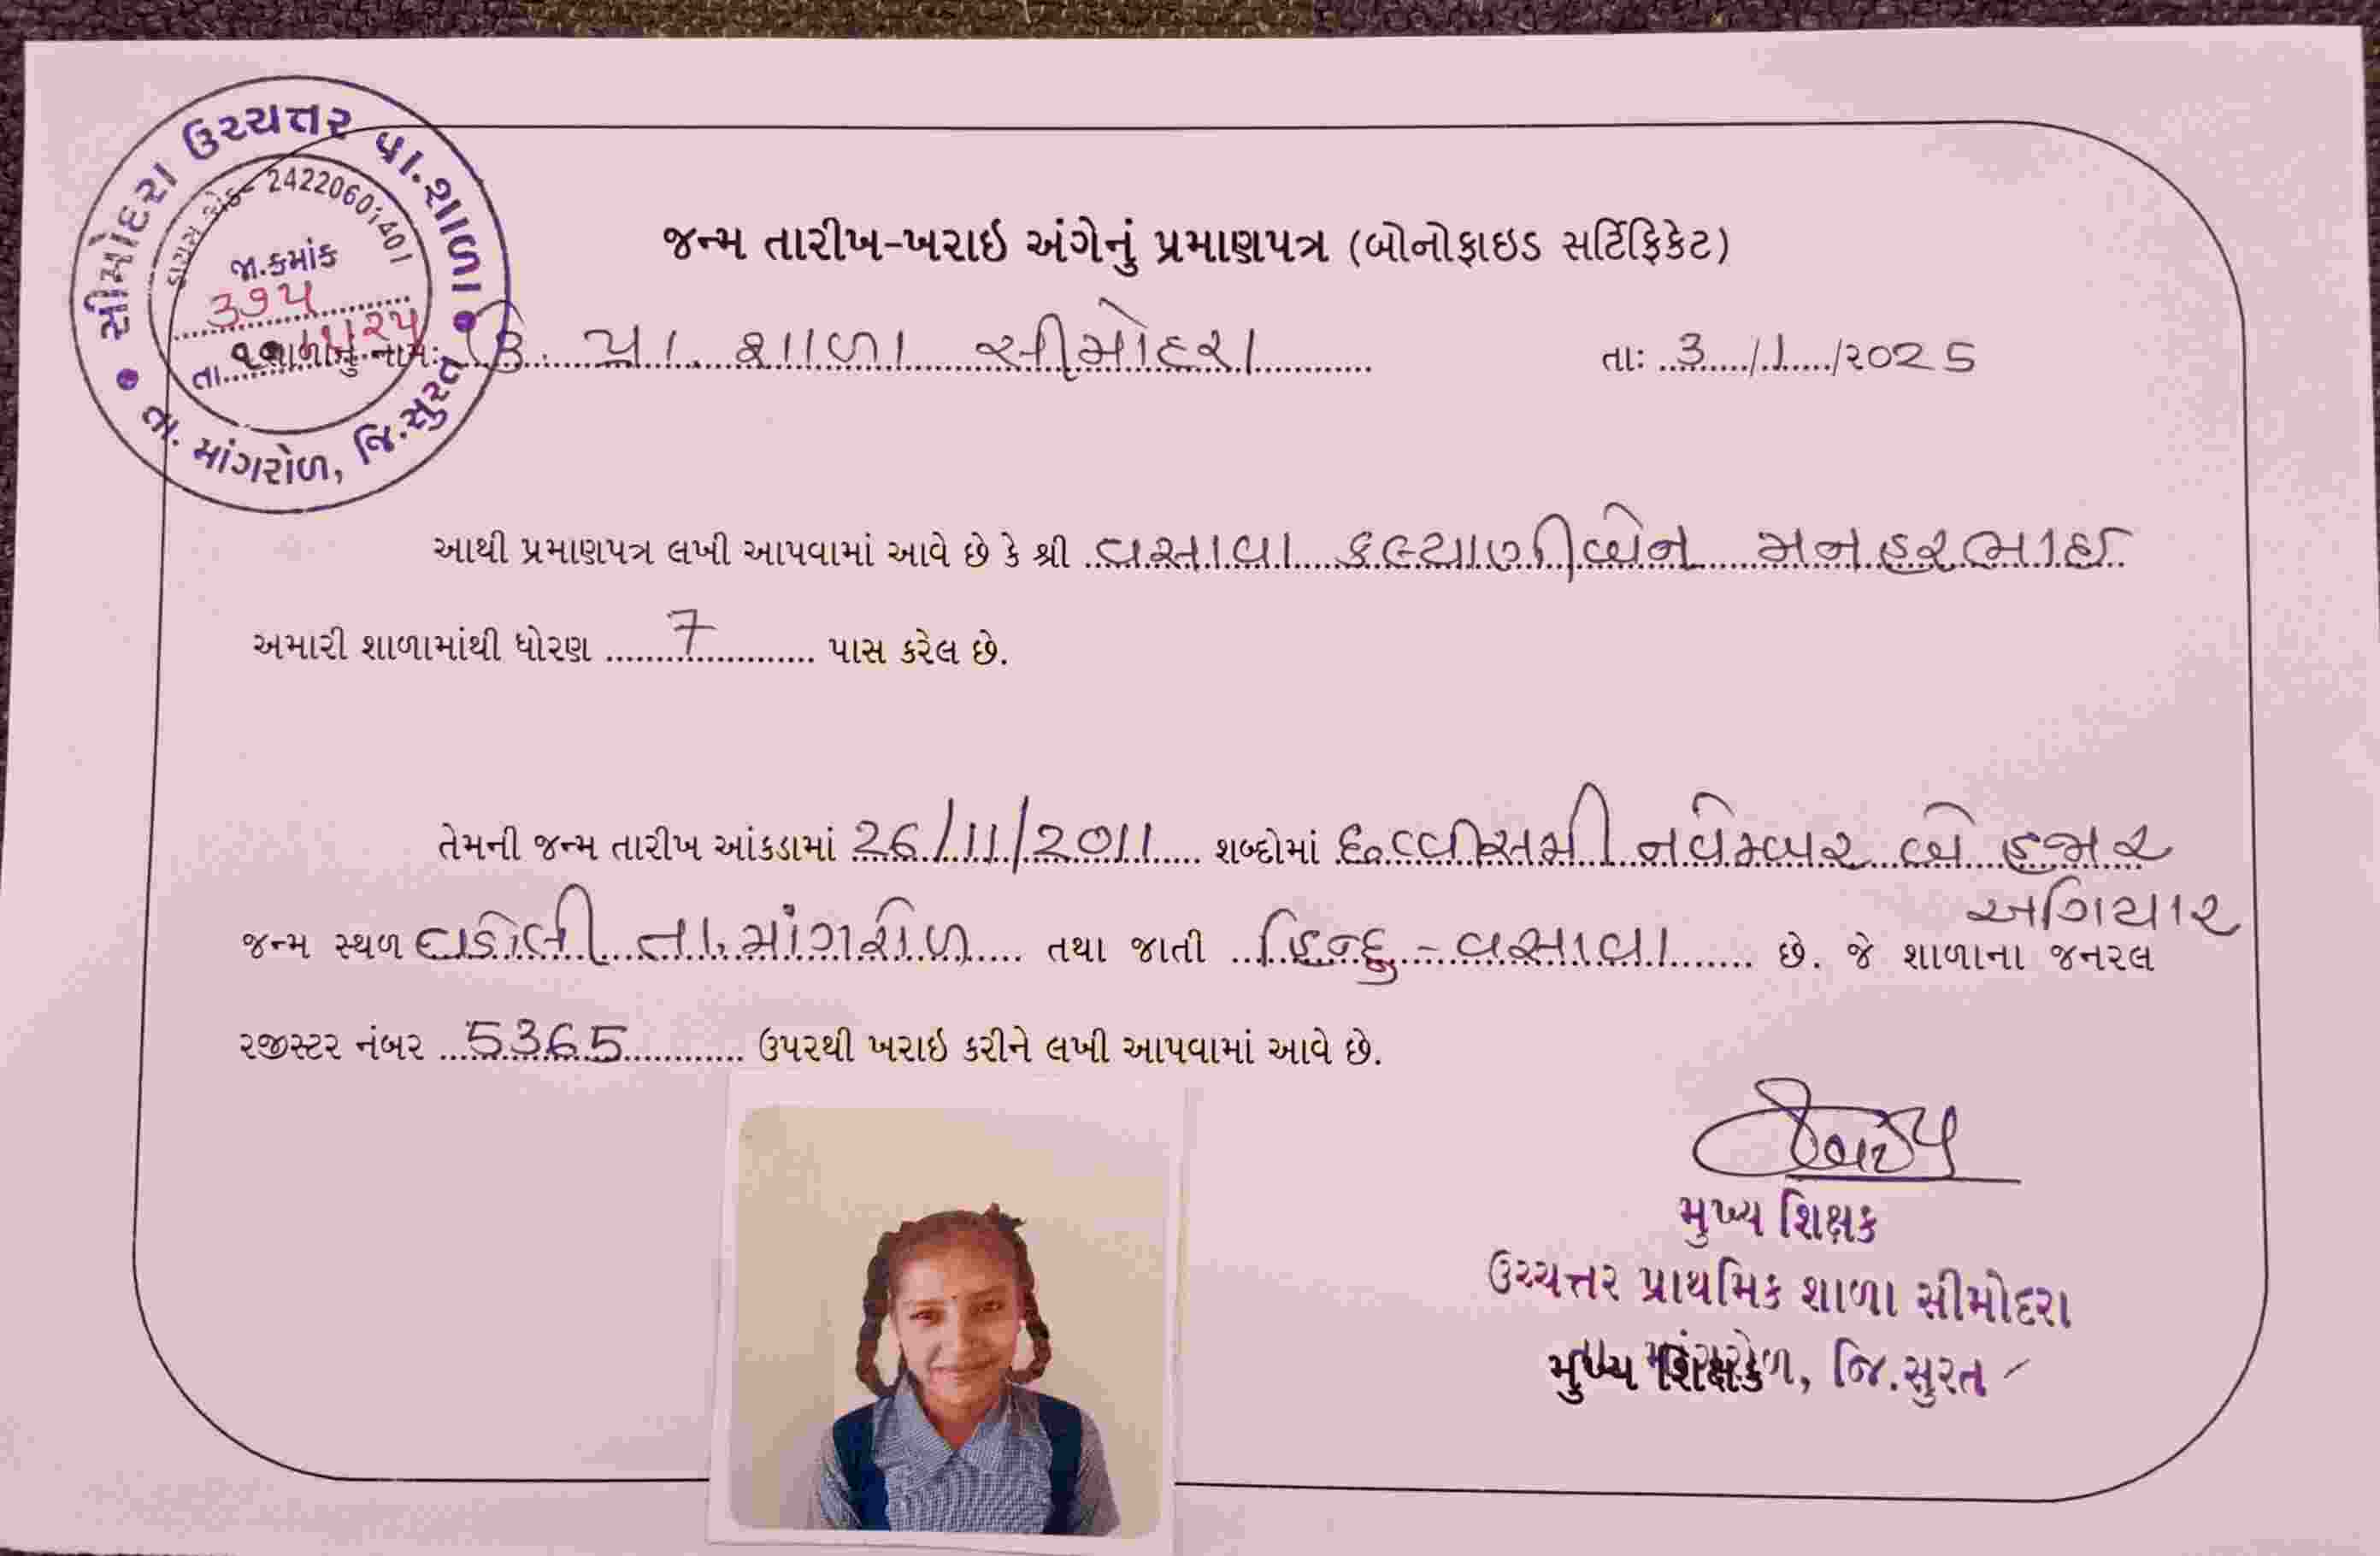 સીમોદરા ઉચ્ચત્તર પ્રા.શાળા
ડાયસ કોડ- 24220601401
જા.કમાંક
૩૭૫
તા. માંગરોળ, જિ.સુરત
જન્મ તારીખ-ખરાઇ અંગેનું પ્રમાણપત્ર (બોનોફાઇડ સર્ટિફિકેટ)
શાળાનું નામ: ઉ. પ્રા. શાળા સીમોદરા તા: 3/1/૨૦25
આથી પ્રમાણપત્ર લખી આપવામાં આવે છે કે શ્રી વસાવા કલ્યાણીબેન મનહરભાઈ
અમારી શાળામાંથી ધોરણ 7 પાસ કરેલ છે.
તેમની જન્મ તારીખ આંકડામાં 26/11/2011 શબ્દોમાં છવ્વીસમી નવેમ્બર બે હજાર
અગિયાર
જન્મ સ્થળ તા. માંગરોળ તથા જાતી હિન્દુ - વસાવા છે. જે શાળાના જનરલ
રજીસ્ટર નંબર 5365 ઉપરથી ખરાઇ કરીને લખી આપવામાં આવે છે.
મુખ્ય શિક્ષક
ઉચ્ચત્તર પ્રાથમિક શાળા સીમોદરા
તા. માંગરોળ, જિ.સુરત
મુખ્ય શિક્ષક